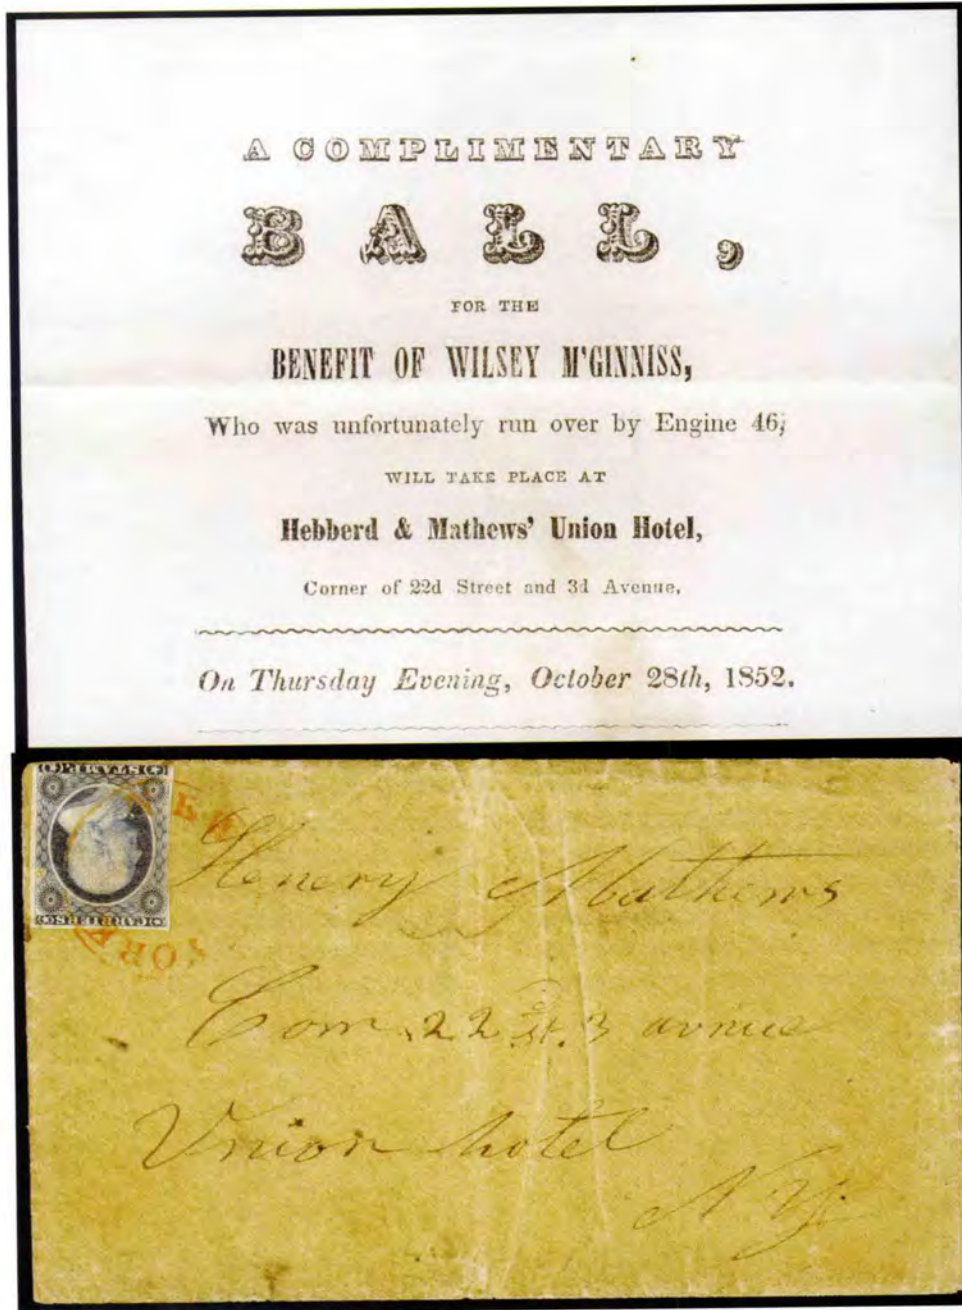 A COMPLIMENTARY
BALL,
FOR THE
BENEFIT OF WILSEY M'GINNISS,
Who was unfortunately run over by Engine 46,
WILL TAKE PLACE AT
Hebberd & Mathews' Union Hotel,
Corner of 22d Street and 3d Avenue,
On Thursday Evening, October 28th, 1852.
CARRIERS
STAMP
YORK
Henery Mathews
Corn 22 st. 3 avnue
Union hotel
N Y.